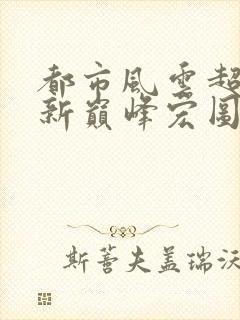 都市風雲超
新巔峰宏圖
斯蒈夫盖瑞沃